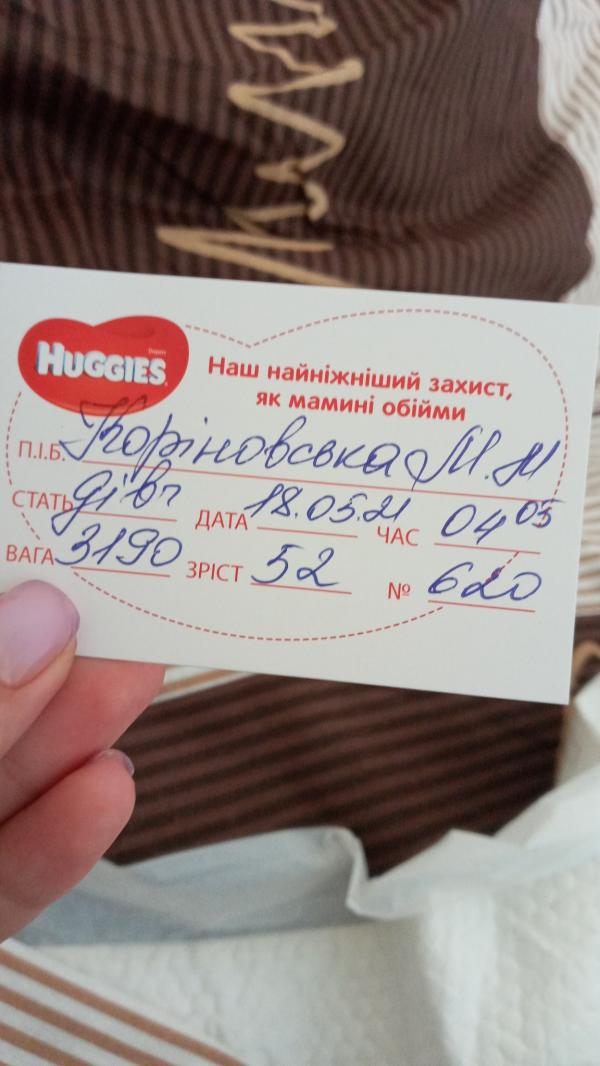 HUGGIES
Наш найніжніший захист,
як мамині обійми
П.І.Б. Коріновська М.М
СТАТЬ дівч ДАТА 18.05.21 ЧАС 04 05
ВАГА 3190 ЗРІСТ 52 № 620